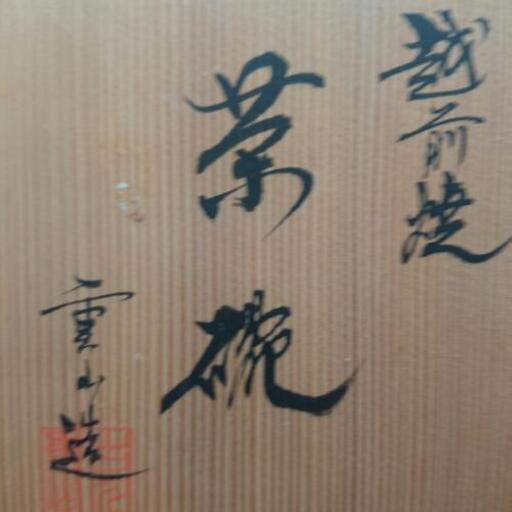 越前焼
茶碗
重山造